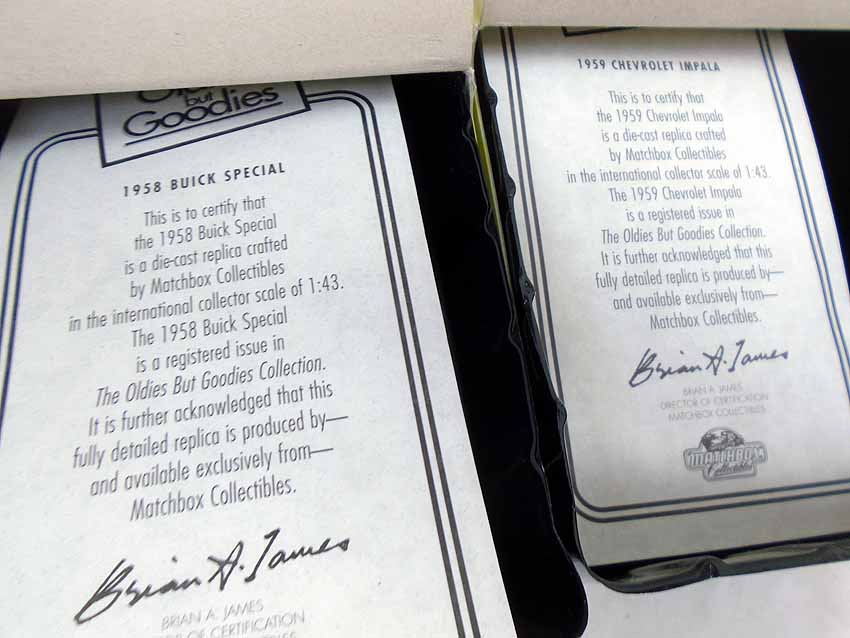 but
Goodies
1958 BUICK SPECIAL
This is to certify that
the 1958 Buick Special
is a die-cast replica crafted
by Matchbox Collectibles
in the international collector scale of 1:43.
The 1958 Buick Special
is a registered issue in
The Oldies But Goodies Collection.
It is further acknowledged that this
fully detailed replica is produced by—
and available exclusively from—
Matchbox Collectibles.
Brian A. James
BRIAN A. JAMES
OF CERTIFICATION
1959 CHEVROLET IMPALA
This is to certify that
the 1959 Chevrolet Impala
is a die-cast replica crafted
by Matchbox Collectibles
in the international collector scale of 1:43.
The 1959 Chevrolet Impala
is a registered issue in
The Oldies But Goodies Collection.
It is further acknowledged that this
fully detailed replica is produced by—
and available exclusively from—
Matchbox Collectibles.
Brian A. James
BRIAN A. JAMES
DIRECTOR OF CERTIFICATION
MATCHBOX COLLECTIBLES
MATCHBOX
Collectibles